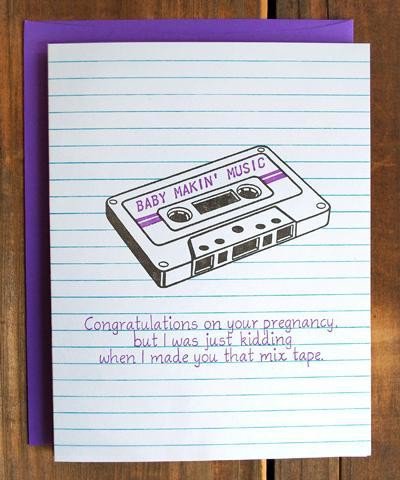 BABY MAKIN' MUSIC
Congratulations on your pregnancy,
but I was just kidding
when I made you that mix tape.